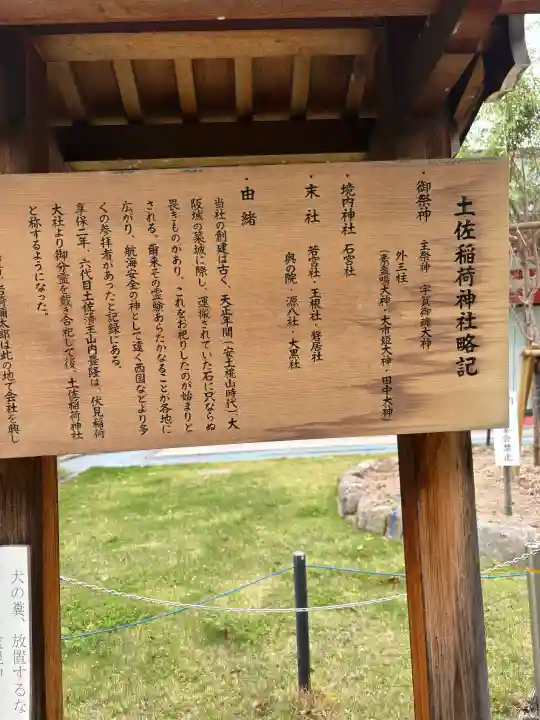 土佐稲荷神社略記
・御祭神 主祭神 宇賀御魂大神
外三柱
(素盞嗚大神・大市姫大神・田中大神)
・境内神社 石宮社
・末社 若宮社・玉根社・磐居社
奥の院・源八社・大黒社
・由緒
当社の創建は古く、天正年間(安土桃山時代)、大
阪城の築城に際し、運搬されていた石に只ならぬ
畏きものがあり、これをお祀りしたのが始まりと
される。爾来その霊験あらたかなることが各地に
広がり、航海安全の神として遠く西国などより多
くの参拝者があったと記録にある。
享保二年、六代目土佐藩主山内豊隆は、伏見稲荷
大社より御分霊を戴き合祀して後、土佐稲荷神社
と称するようになった。
岩崎彌太郎は此の地で会社を興し
犬の糞、放置するな
禁止